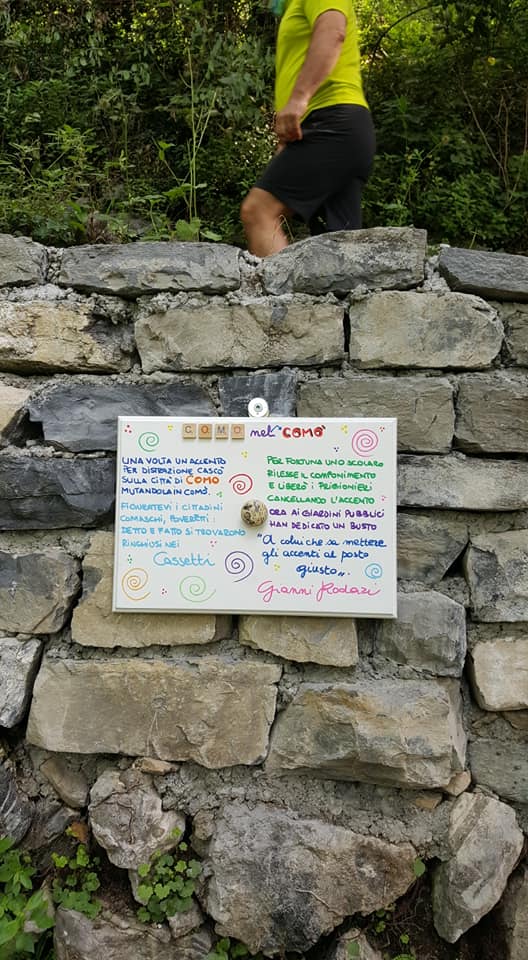 COMO nel COMÒ
UNA VOLTA UN ACCENTO
PER DISTRAZIONE CASCÒ
SULLA CITTÀ DI COMO
MUTANDOLA IN COMÒ.
FIGURATEVI I CITTADINI
COMASCHI, POVERETTI:
DETTO E FATTO SI TROVARONO
RINCHIUSI NEI
Cassetti
PER FORTUNA UNO SCOLARO
RILESSE IL COMPONIMENTO
E LIBERÒ I PRIGIONIERI
CANCELLANDO L'ACCENTO
ORA AI GIARDINI PUBBLICI
HAN DEDICATO UN BUSTO
"A colui che sa mettere
gli accenti al posto
giusto".
Gianni Rodari